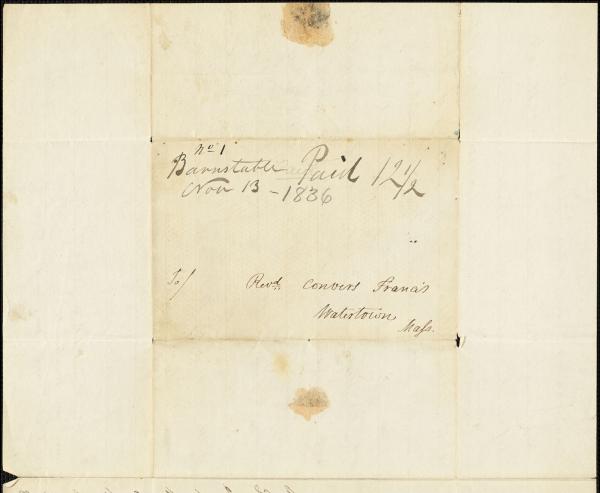 No 1
Barnstable Paid 12 1/2
Nov 13 - 1836
To/ Revd. Convers Francis
Watertown
Mass.